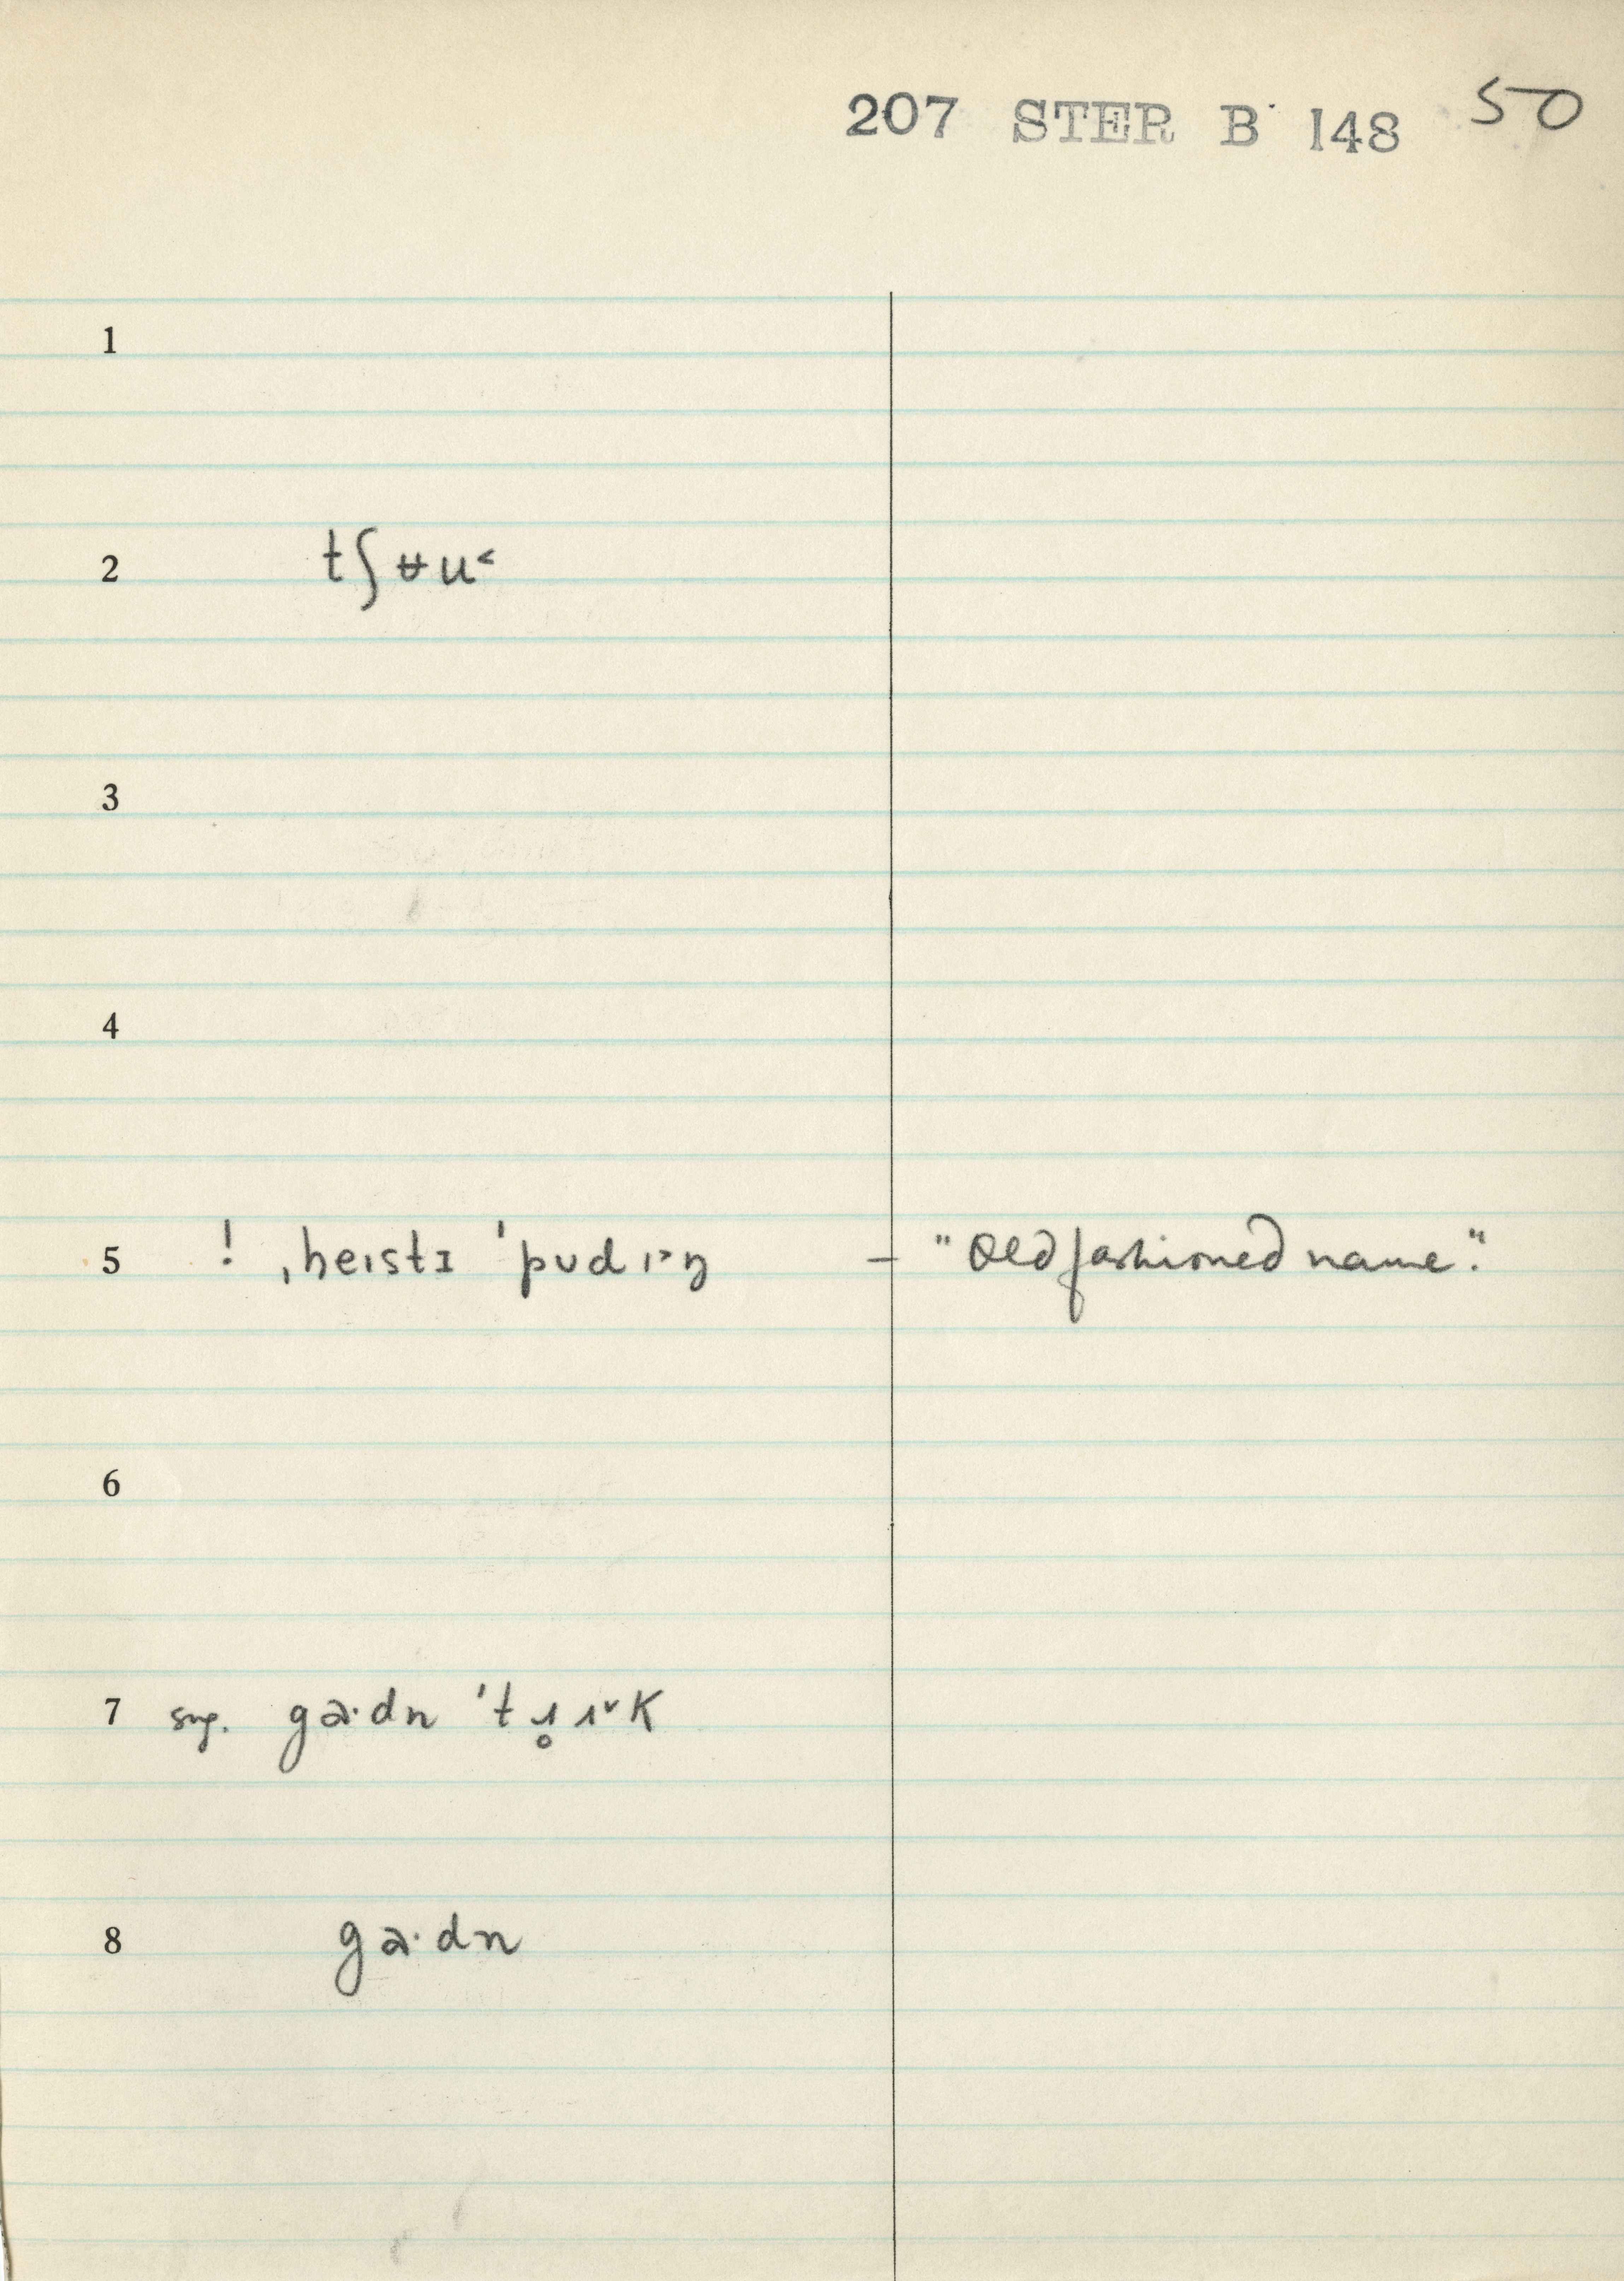 207 STER B 148 50
1
2 tʃʉu˂
3
4
5 ! ˌheɪstɪ ˈpʊdɪ˃ŋ – "Old fashioned name".
6
7 sug. ga·dn ˈtɹ̥ɪ˅k
8 ga·dn